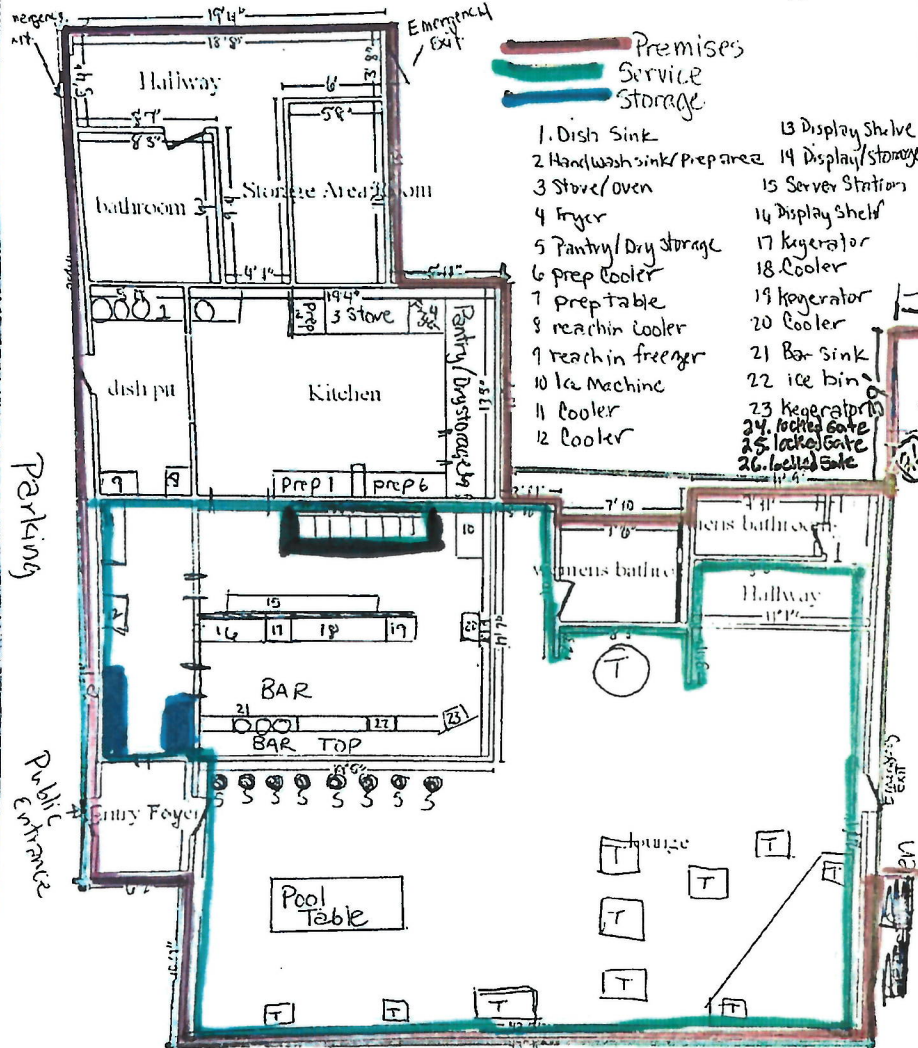 19'4"
Emergency
Exit
18'8"
Premises
Service
Storage
Hallway
5'4"
3'8"
6'
5'8"
8'7"
8'3"
1. Dish Sink
2 Handwash sink/Prep area
3 Stove/oven
4 Fryer
5 Pantry/Dry storage
6 prep Cooler
7 prep table
8 reachin cooler
9 reachin freezer
10 Ice Machine
11 Cooler
12 Cooler
13 Display Shelve
14 Display/storage
15 Server Station
16 Display Shelf
17 Kegerator
18. Cooler
19 Kegerator
20 Cooler
21 Bar Sink
22 ice bin
23 Kegerator
24. locked Gate
25. locked Gate
26. locked Gate
bathroom
Storage Area
4'1"
5'11"
19'4"
3 Stove
dish pit
Kitchen
Pantry/Dry storage
9
8
prep 1
prep 6
Parking
10
7'10
7'6"
mens bathroom
womens bathro
Hallway
11'1"
15
16
17
18
19
T
BAR
21
22
23
BAR TOP
S S S S S S S
Public
Entrance
Entry Foyer
Emergency
Exit
lounge
T
T
T
T
T
T
Pool
Table
T
T
T
T